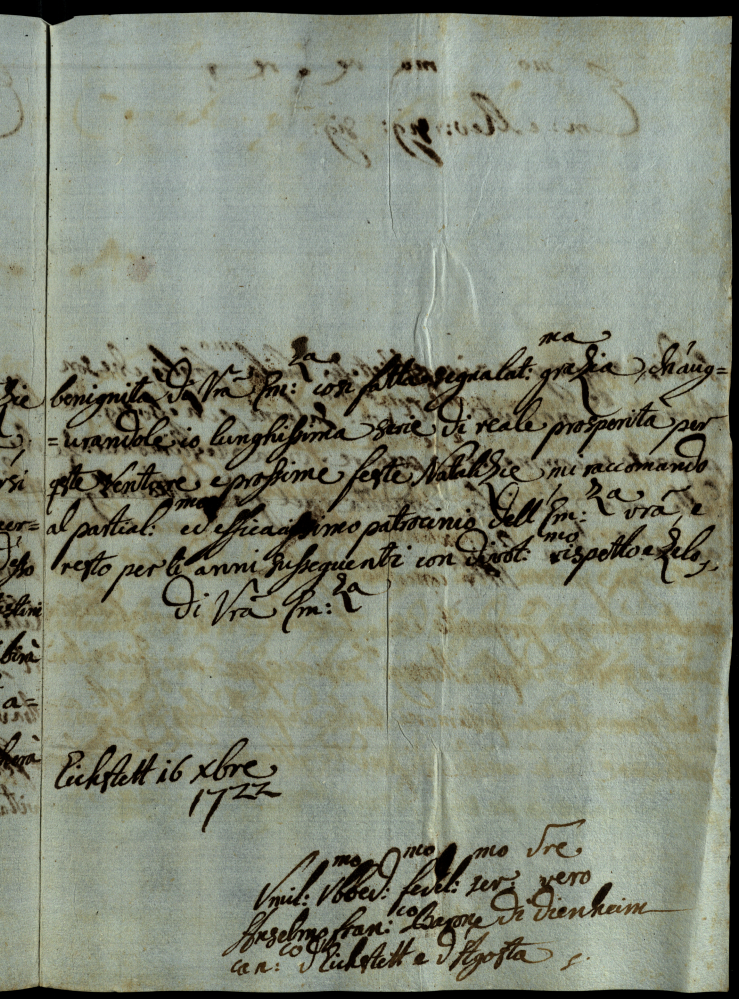 benignità di Vrã Em:za con fatta segnalat:ma grazia, ch'aug=
=urandole io lunghissima serie di reale prosperità per
qste venture e prossime feste Natalizie mi raccomando
al partial:mo ed efficacissimo patrocinio dell'Em:za vrã, e
resto per li anni susseguenti con divot:mo rispetto e zelo,
Di Vrã Em:za
Eichstett 16 xbre
1722
Vmil:mo Vbbed:mo fedel:mo ser:re vero
Anselmo Fran:co Barone di Dienheim
can:co d'Eichstett e d'Agosta